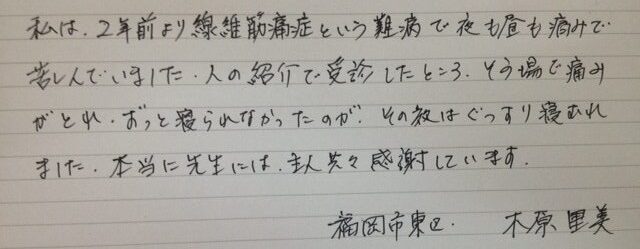 私は、2年前より線維筋痛症という難病で夜も昼も痛みで
苦しんでいました。人の紹介で受診したところ、その場で痛み
がとれ、ずっと寝られなかったのが、その夜はぐっすり寝むれ
ました。本当に先生には、主人共々感謝しています。
福岡市東区. 木原里美